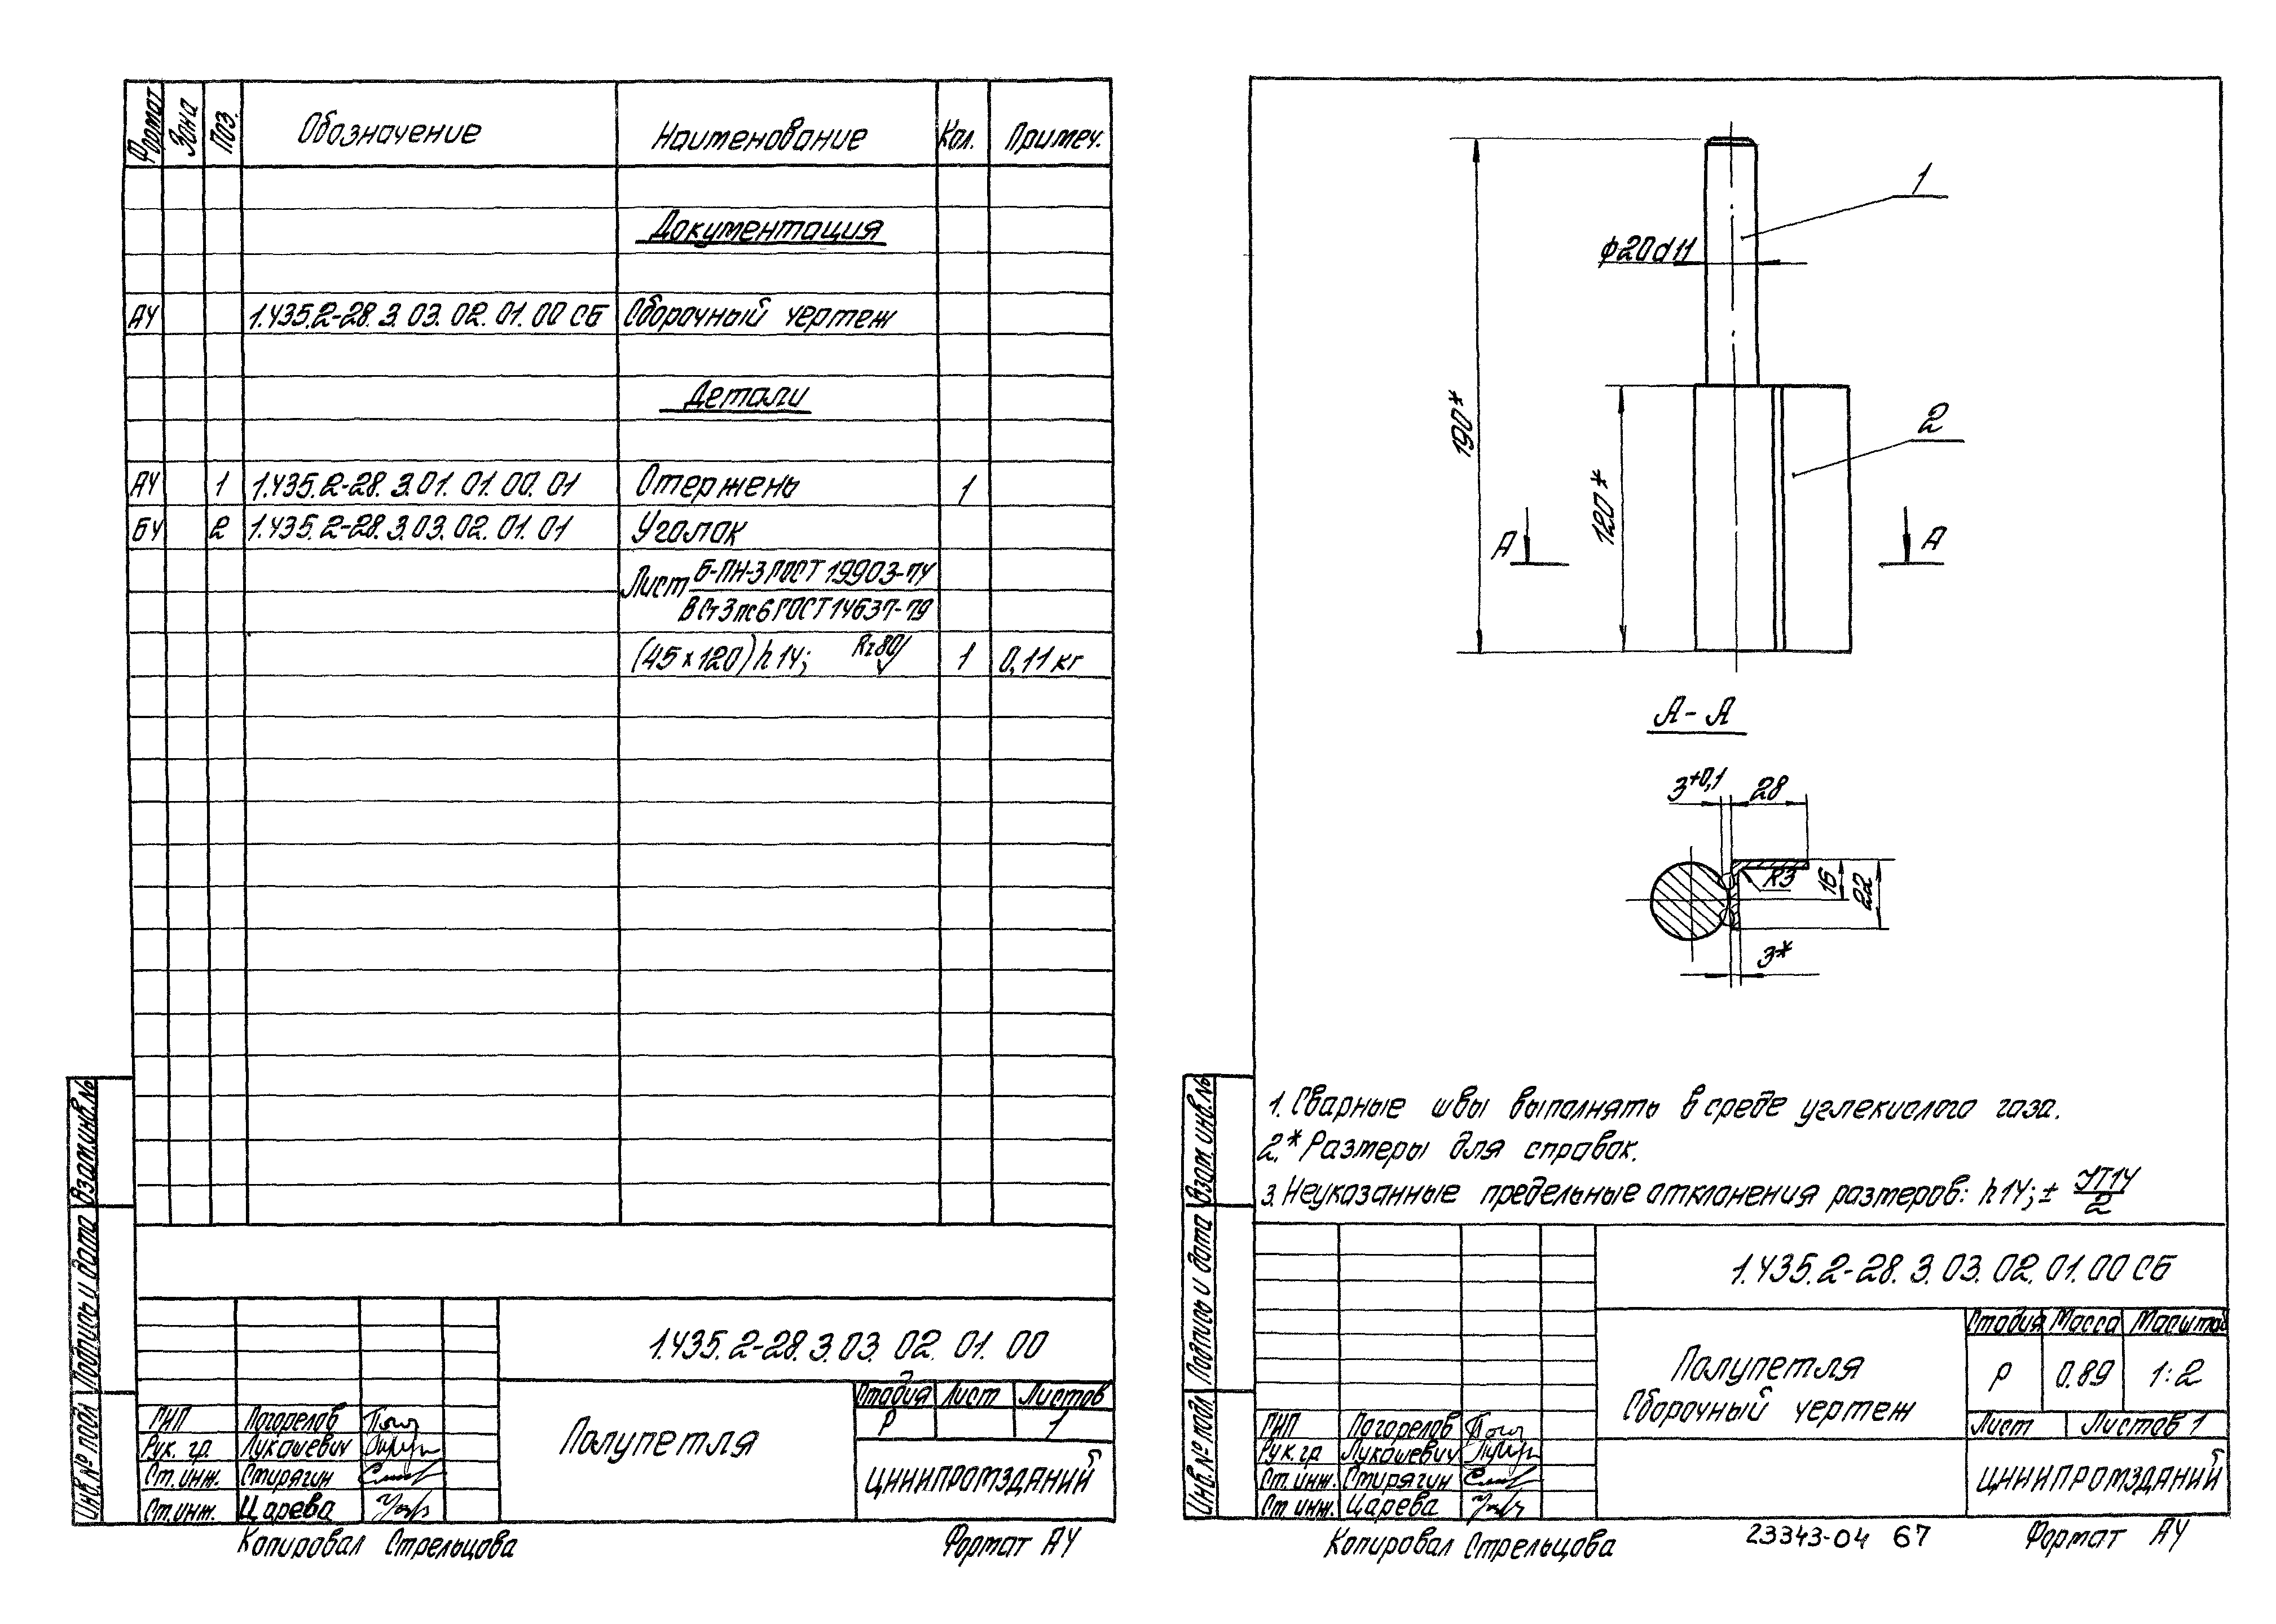 Формат Зона Поз. Обозначение Наименование Кол. Примеч.
Документация
А4 1.435.2-28.3.03.02.01.00 СБ Сборочный чертеж
Детали
А4 1 1.435.2-28.3.01.01.00.01 Стержень 1
БЧ 2 1.435.2-28.3.03.02.01.01 Уголок
Лист Б-ПН-3 ГОСТ 19903-74
ВСт3пс6 ГОСТ 14637-79
(45×120) h14; Rz80 1 0,11 кг
Взам. инв. №
Подпись и дата
Инв. № подл
1.435.2-28.3.03.02.01.00
ГИП Погорелов
Рук. гр. Лукашевич
Ст. инж. Стирягин
Ст. инж. Царева
Полупетля
Стадия Лист Листов
Р 1
ЦНИИПРОМЗДАНИЙ
Копировал Стрельцова Формат А4
1
ϕ20d11
190*
2
120*
А А
А-А
3+0,1 28
R3
16
22
3*
1. Сварные швы выполнять в среде углекислого газа.
2.* Размеры для справок.
3. Неуказанные предельные отклонения размеров: h14; ± IT14/2
Взам. инв. №
Подпись и дата
Инв. № подл
1.435.2-28.3.03.02.01.00 СБ
Полупетля
Сборочный чертеж
Стадия Масса Масштаб
Р 0.89 1:2
Лист Листов 1
ГИП Погорелов
Рук. гр Лукашевич
Ст. инж. Стирягин
Ст. инж. Царева
ЦНИИПРОМЗДАНИЙ
Копировал Стрельцова 23343-04 67 Формат А4